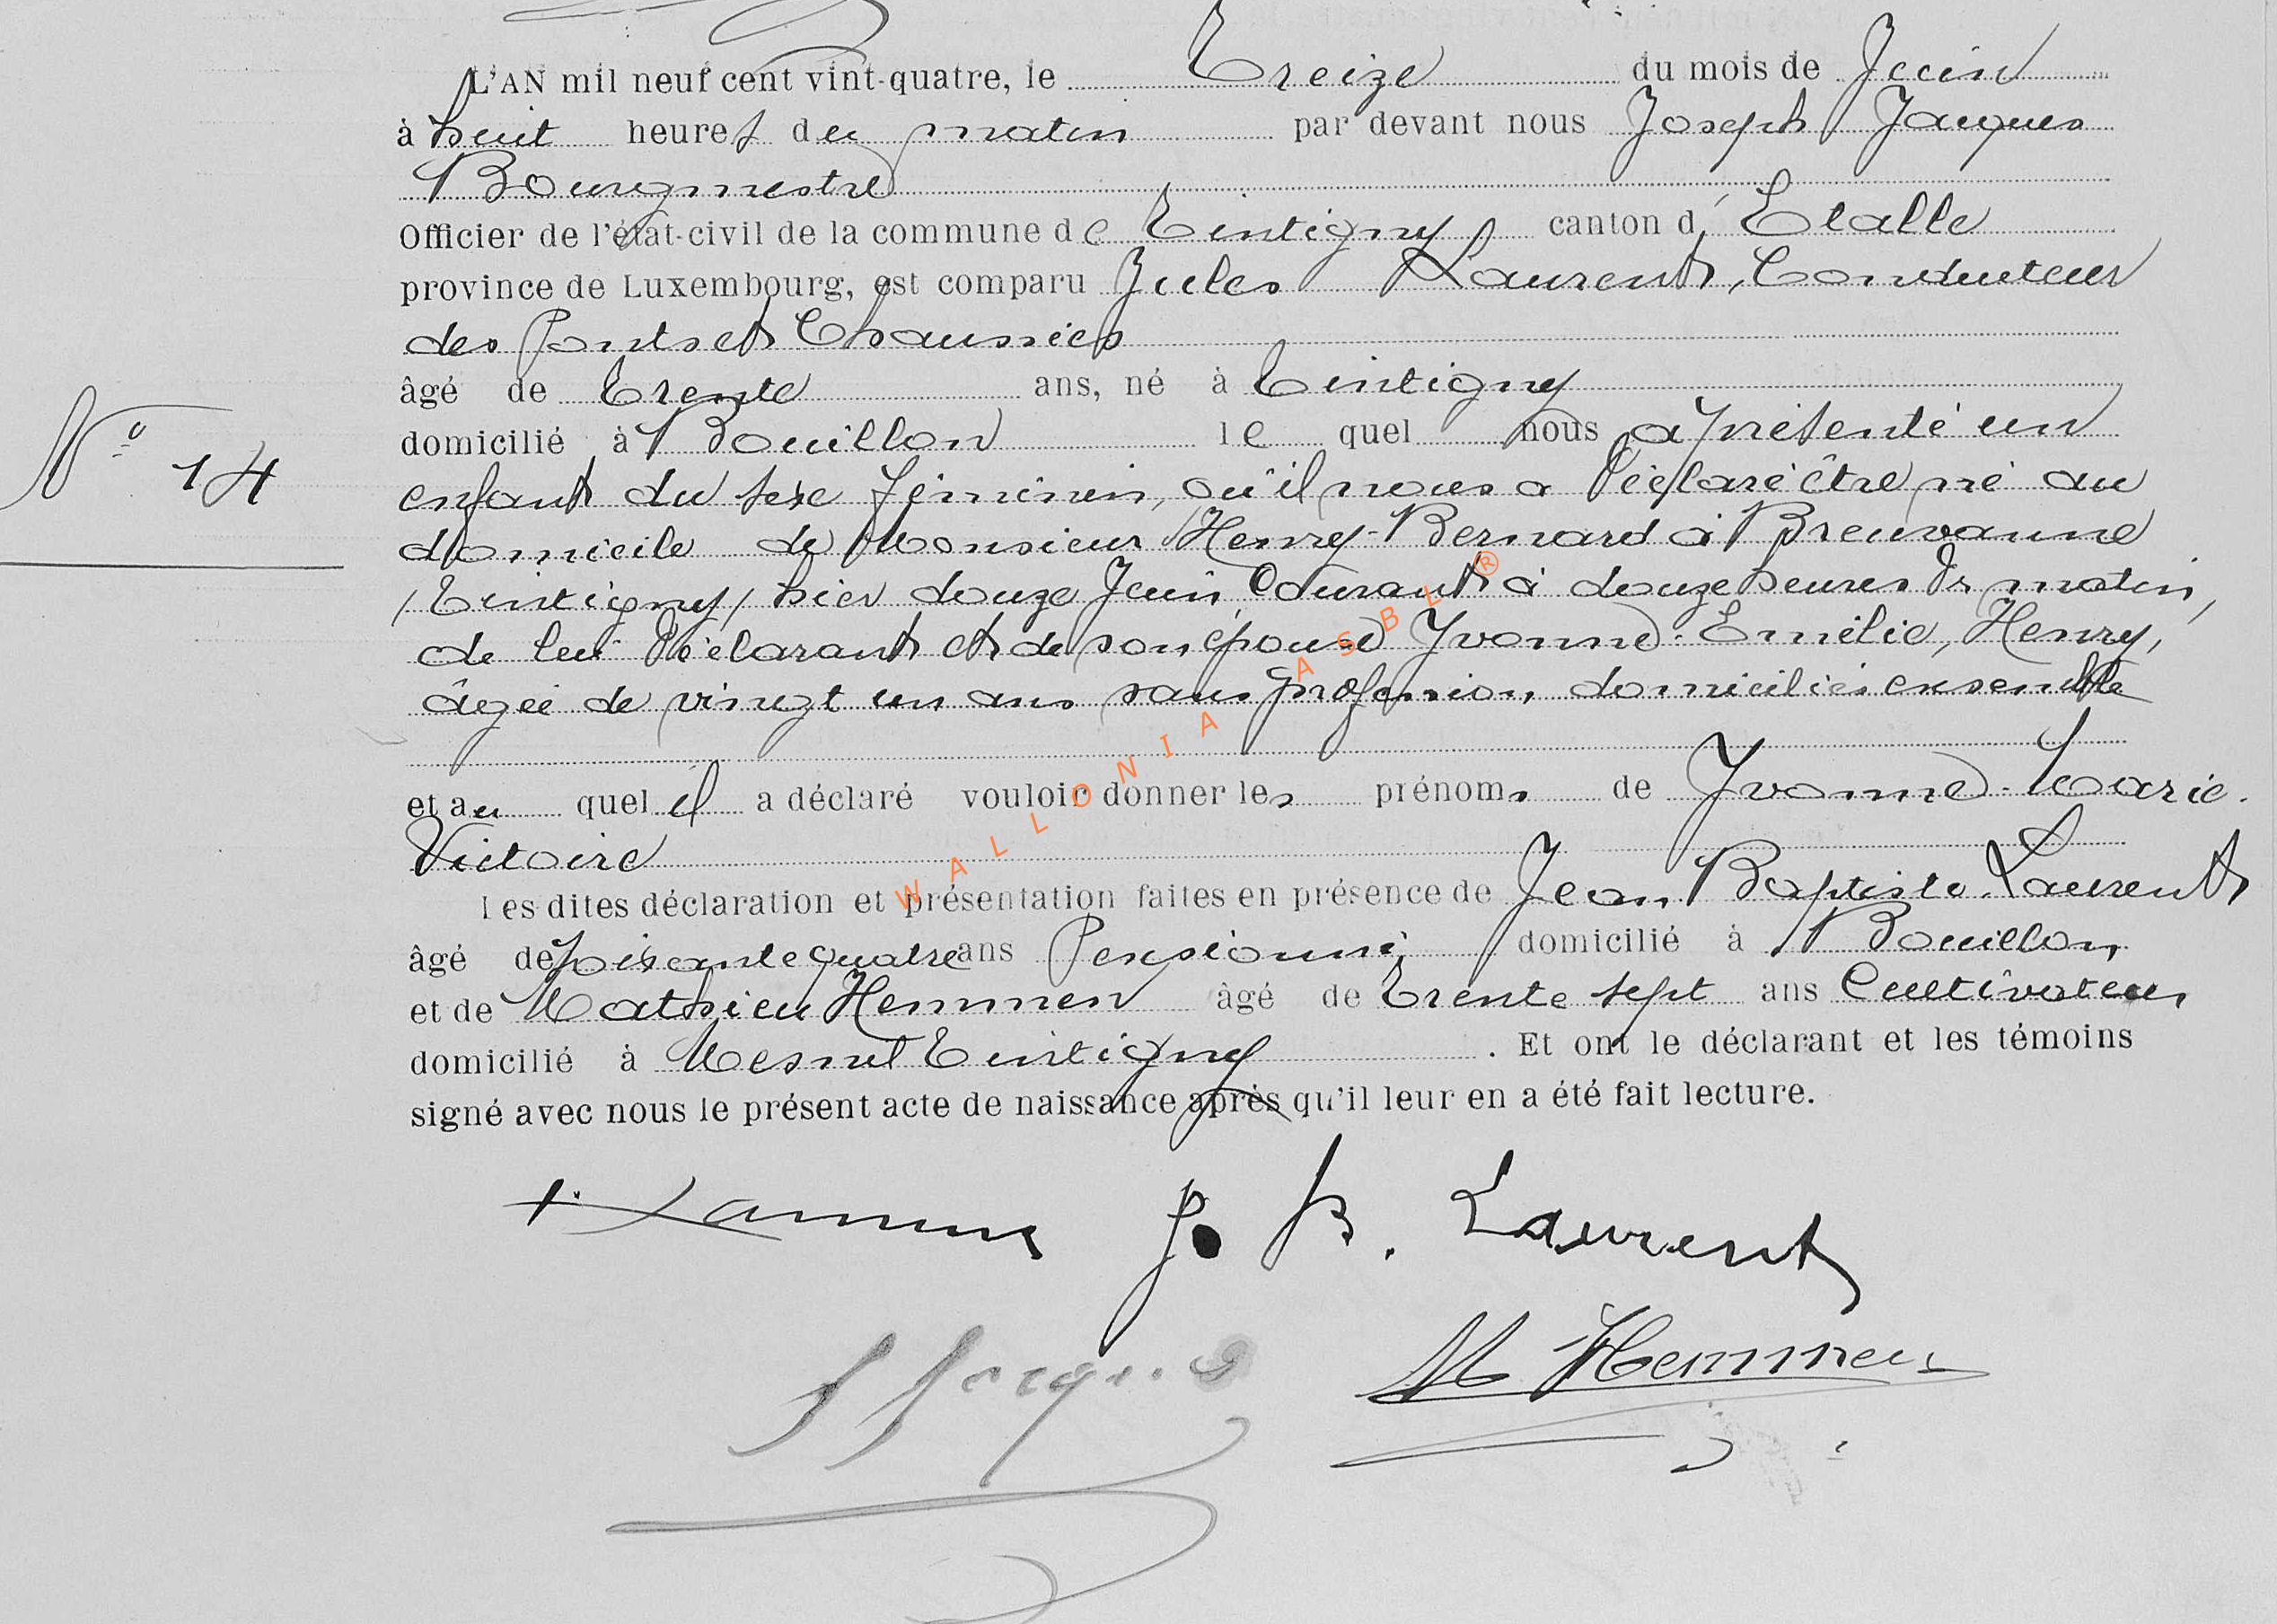 L'AN mil neuf cent vint-quatre, le Treize du mois de Juin
à huit heures du matin par devant nous Joseph Jacques
Bourgmestre
Officier de l'état-civil de la commune de Tintigny canton d'Etalle
province de Luxembourg, est comparu Jules Laurent, Conducteur
des Ponts et Chaussées
âgé de Trente ans, né à Tintigny
domicilié à Bouillon le quel nous a présenté un
N° 14
enfant du sexe féminin, qu'il nous a déclaré être né au
domicile de Monsieur Henry-Bernard à Breuvanne
/Tintigny/ hier douze Juin courant à douze heures du matin,
de lui déclarant et de son épouse Yvonne-Emélie, Henry,
âgée de vingt un ans sans profession, domiciliés ensemble
et au quel il a déclaré vouloir donner les prénoms de Yvonne-Marie.
Victoire
Les dites déclaration et présentation faites en présence de Jean Baptiste Laurent
âgé de soixante quatre ans Pensionné, domicilié à Bouillon,
et de Mathieu Hemmen âgé de Trente sept ans Cultivateur
domicilié à Mesnil Tintigny. Et ont le déclarant et les témoins
signé avec nous le présent acte de naissance après qu'il leur en a été fait lecture.
J. B. Laurent
J Jacques
M Hemmen
WALLONIA ASBL ®